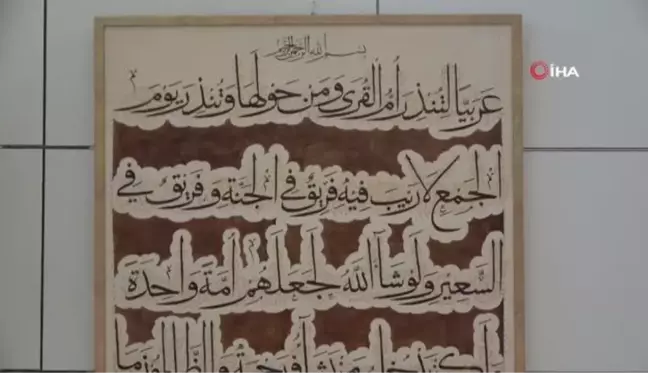 بسم الله الرحمن الرحيم
عَرَبِيًّا لِتُنْذِرَ أُمَّ الْقُرَى وَمَنْ حَوْلَهَا وَتُنْذِرَ يَوْمَ
الْجَمْعِ لَا رَيْبَ فِيهِ فَرِيقٌ فِي الْجَنَّةِ وَفَرِيقٌ فِي
السَّعِيرِ وَلَوْ شَاءَ اللَّهُ لَجَعَلَهُمْ أُمَّةً وَاحِدَةً
İHA